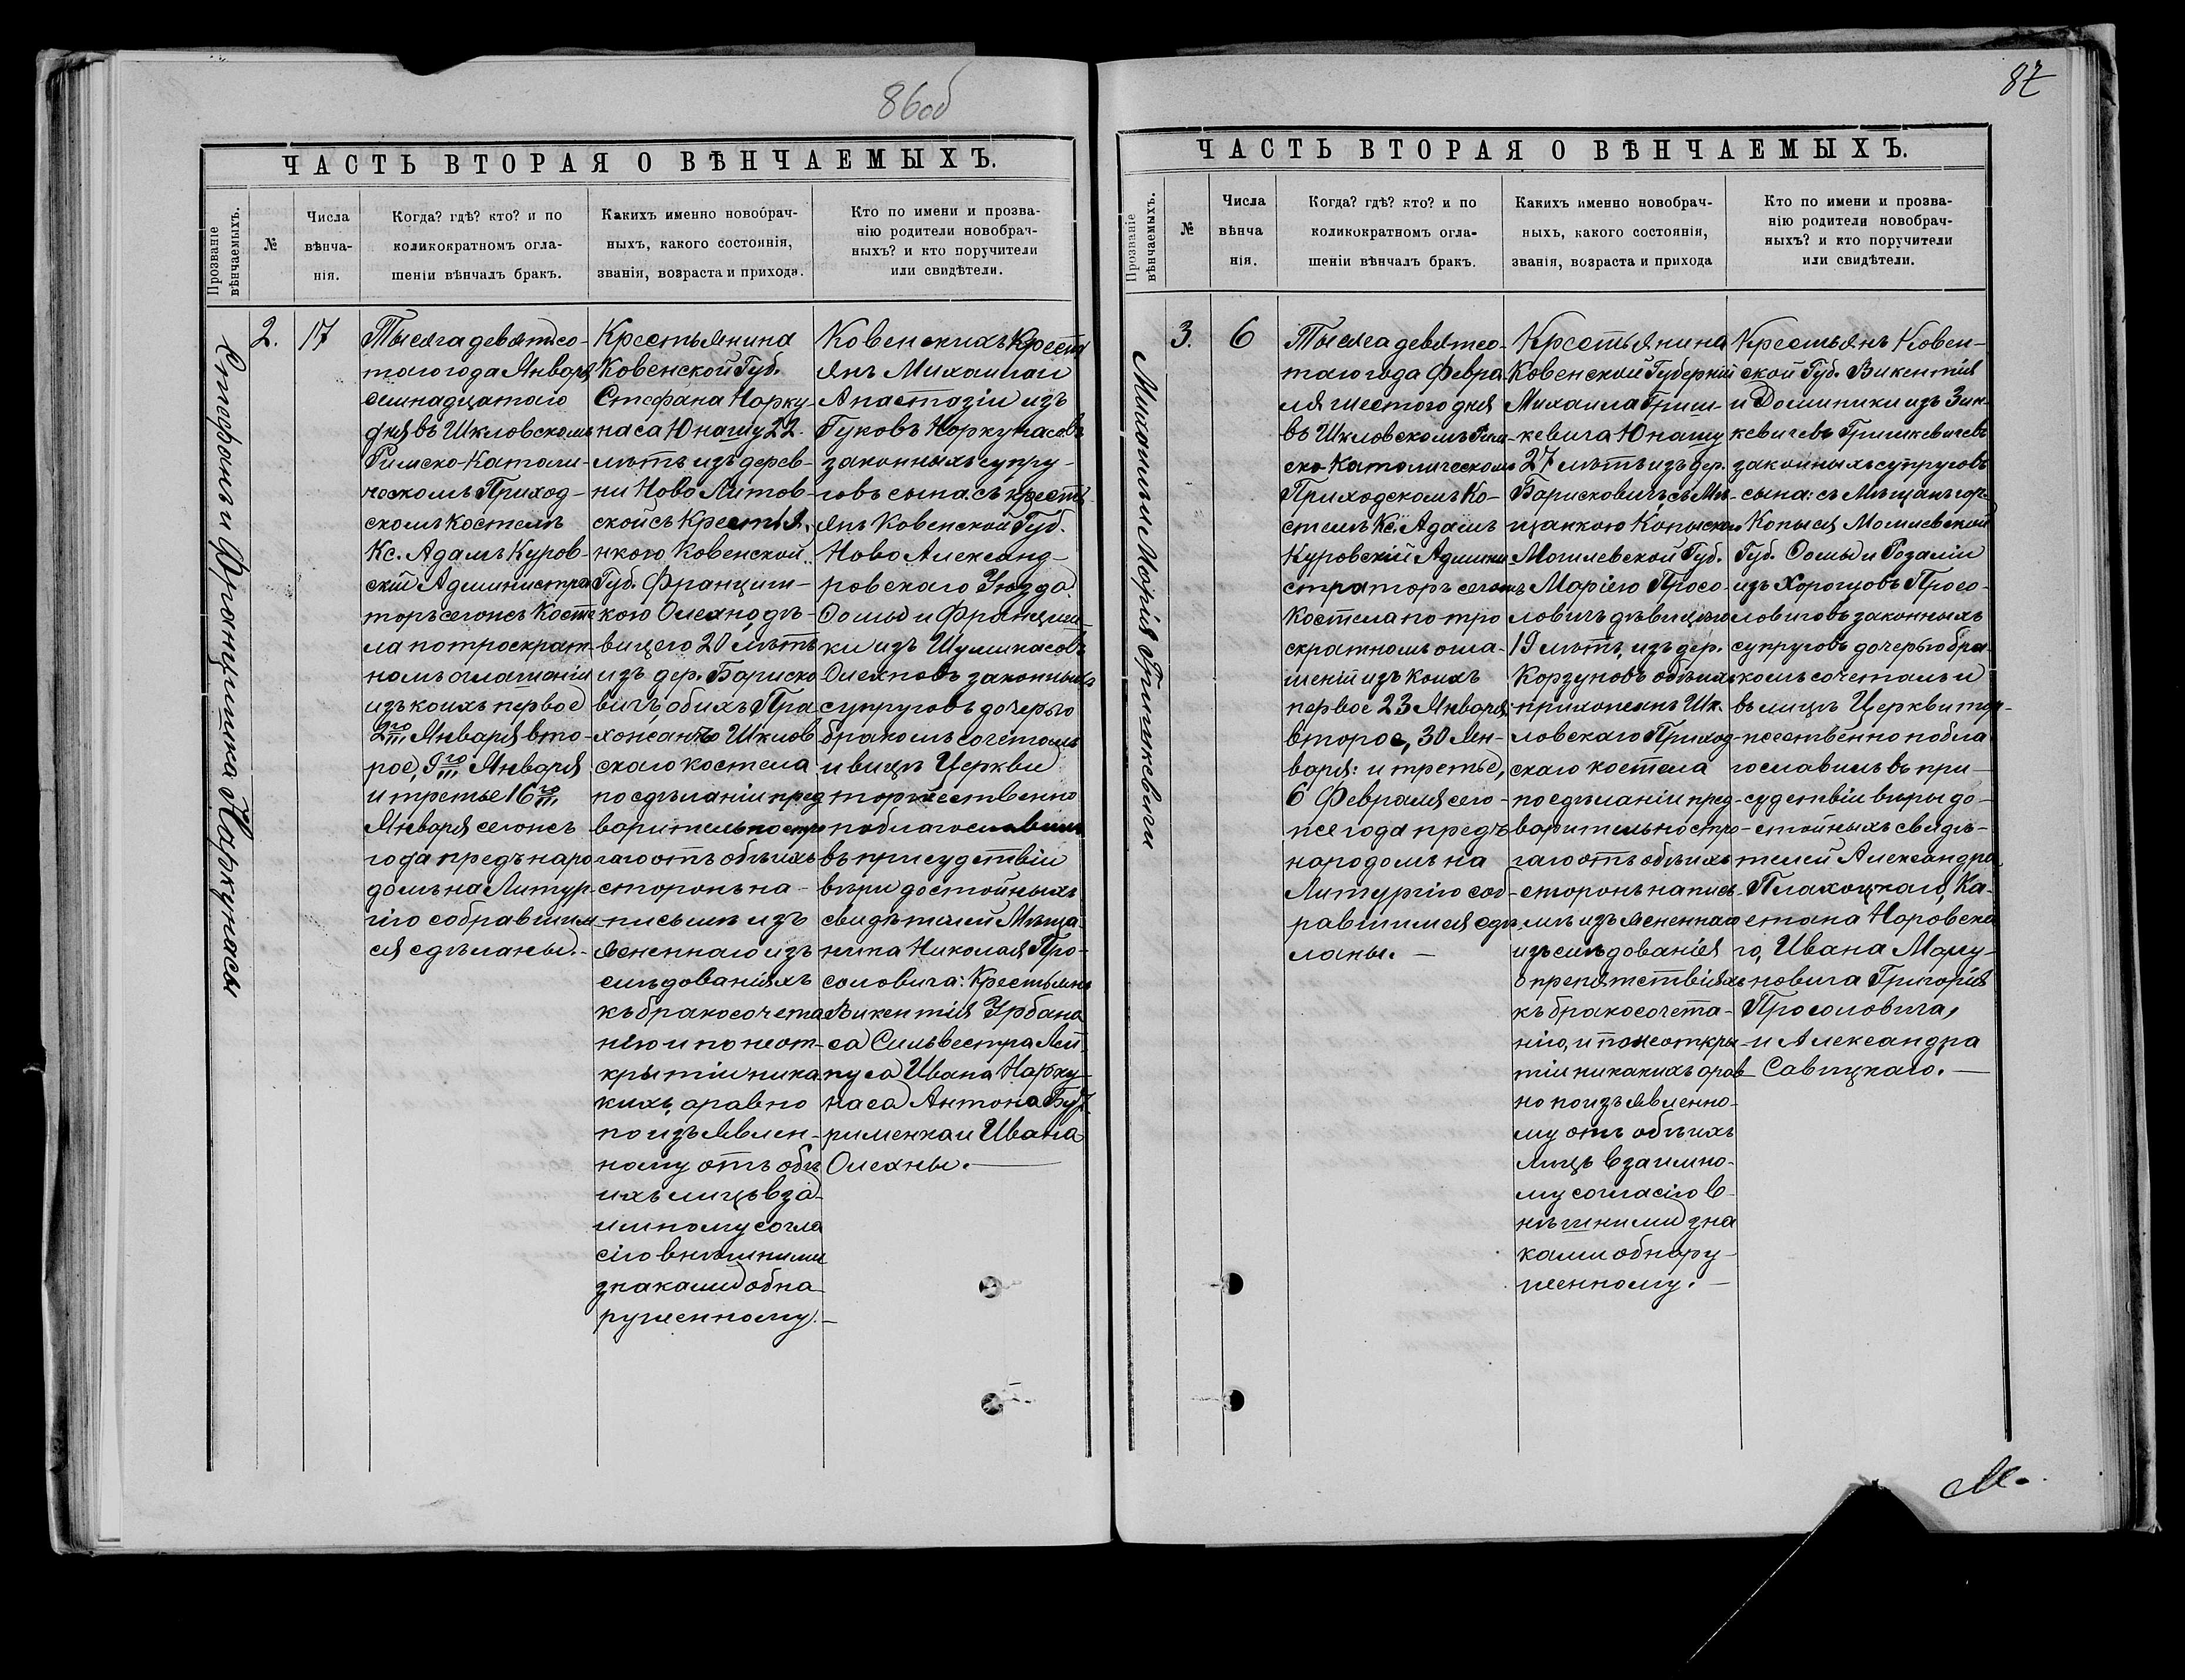 86об
ЧАСТЬ ВТОРАЯ О ВѢНЧАЕМЫХЪ.
Прозваніе
вѣнчаемыхъ.
№
Числа
вѣнча-
нія.
Когда? гдѣ? кто? и по
коликократномъ огла-
шеніи вѣнчалъ бракъ.
Какихъ именно новобрач-
ныхъ, какого состоянія,
званія, возраста и прихода.
Кто по имени и прозва-
нію родители новобрач-
ныхъ? и кто поручители
или свидѣтели.
Стефанъ и Францишка Наркунасы
2.
17
Тысяча девятьсо-
таго года Января
семнадцатаго
дня въ Шкловскомъ
Римско-Католи-
ческомъ Приход-
скомъ костелѣ
Кс. Адамъ Куров-
скій Администра
торъ сегожъ Косте
ла по троекрат-
номъ оглашеніи
изъ коихъ первое
2го Января вто-
рое, 9го Января
и третье 16го
Января сегожъ
года предъ наро
домъ на Литур-
гію собравшим-
ся сдѣланы.-
Крестьянина
Ковенской Губ.
Стефана Норку
наса Юношу 22
лѣтъ изъ дерев-
ни Ново Литов-
ской съ Крестья
нкою Ковенской
Губ. Францишь-
кою Олехно, дѣ-
вицею 20 лѣтъ
изъ дер. Бариско
вичъ, обихъ При
хожанъ Шклов
скаго костела
по сдѣланіи пред
варительно стро
гаго отъ обѣихъ
сторонъ на-
письмѣ изъ
ясненнаго изъ
слѣдованіяхъ
къ бракосочета
нію и по неот-
крытіи ника
кихъ, оравно
по изъявлен-
ному отъ обѣ
ихъ лицъ вза-
имному согла
сію внѣшними
знаками обна
руженному.-
Ковенскихъ Крест
янъ Михаила и
Анастазіи изъ
Гуковъ Норкунасовъ
законныхъ супру-
говъ сына съ Крестъ
янъ Ковенской Губ.
Ново Александ-
ровскаго Уѣзда
Фомы и Францишь
ки изъ Шумикасовъ
Олехновъ законныхъ
супруговъ дочерью
бракомъ сочеталъ
и вицѣ Церкви
торжественно
поблагословилъ
въ присудствіи
вѣри достойныхъ
свидѣтелей Мѣща
нина Николая Про-
соловича: Крестьянъ
Викентія Урбана
са Сильвестра Лей
пуса Ивана Нарку
наса Антона Буд-
рименка и Ивана
Олехны. —
87
ЧАСТЬ ВТОРАЯ О ВѢНЧАЕМЫХЪ.
Прозваніе
вѣнчаемыхъ.
№
Числа
вѣнча
нія.
Когда? гдѣ? кто? и по
коликократномъ огла-
шеніи вѣнчалъ бракъ.
Какихъ именно новобрач-
ныхъ, какого состоянія,
званія, возраста и прихода
Кто по имени и прозва-
нію родители новобрач-
ныхъ? и кто поручители
или свидѣтели.
Михаилъ и Марія Гришкевичи
3.
6
Тысяча девятсо-
таго года Февра
ля шестого дня
въ Шкловскомъ Рим
ско-католическомъ
Приходскомъ Ко-
стелѣ Кс. Адамъ
Куровскій Админи
страторъ сегожъ
Костела по тро
екратномъ огла-
шеній изъ коихъ
первое 23 Января,
второе, 30 Ян-
варя: и третье,
6 Февраля сего-
же года предъ
народомъ на
Литургію соб-
равшимся сдѣ
ланы. —
Крестьянина
Ковенской Губерніи
Михаила Гриш-
кевича Юношу
27 лѣтъ изъ дер.
Барисковичъ съ Мѣ-
щанкою Копыскою
Могилевской Губ.
Маріею Просо-
ловичъ дѣвицею
19 лѣтъ, изъ дер.
Корзуновъ обѣихъ
прихожанъ Шк-
ловскаго Приход-
скаго костела
по сдѣланіи пред-
варительно стро-
гаго отъ обѣихъ
сторонъ на пись-
мѣ изъясненнаго
изъслѣдованія
о препятствіяхъ
къ бракосочета-
нію, и по неоткры
тіи никакихъ орав
но по изъявленно-
му отъ обѣихъ
лицъ взаимно-
му согласію в-
нѣшними зна
ками обнару-
женному. —
Крестьянъ Ковен-
ской Губ. Викентія
и Доминики изъ Зин-
кевичевъ Гришкевичевъ
законныхъ супруговъ
сына: съ Мѣщанъ гор-
Копыся Могилевской
Губ. Фомы и Розаліи
изъ Хорощовъ Просо-
ловичовъ законныхъ
супруговъ дочерью бра
комъ сочеталъ и
въ лицѣ Церкви тор-
жественно побла
гословилъ въ при-
судствіи вѣры до-
стойныхъ свидѣ-
телей Александра
Плахоцкаго, Ка-
етана Норовска
го, Ивана Мацу-
новича Григорія
Просоловича,
и Александра
Савицкаго. —
М.